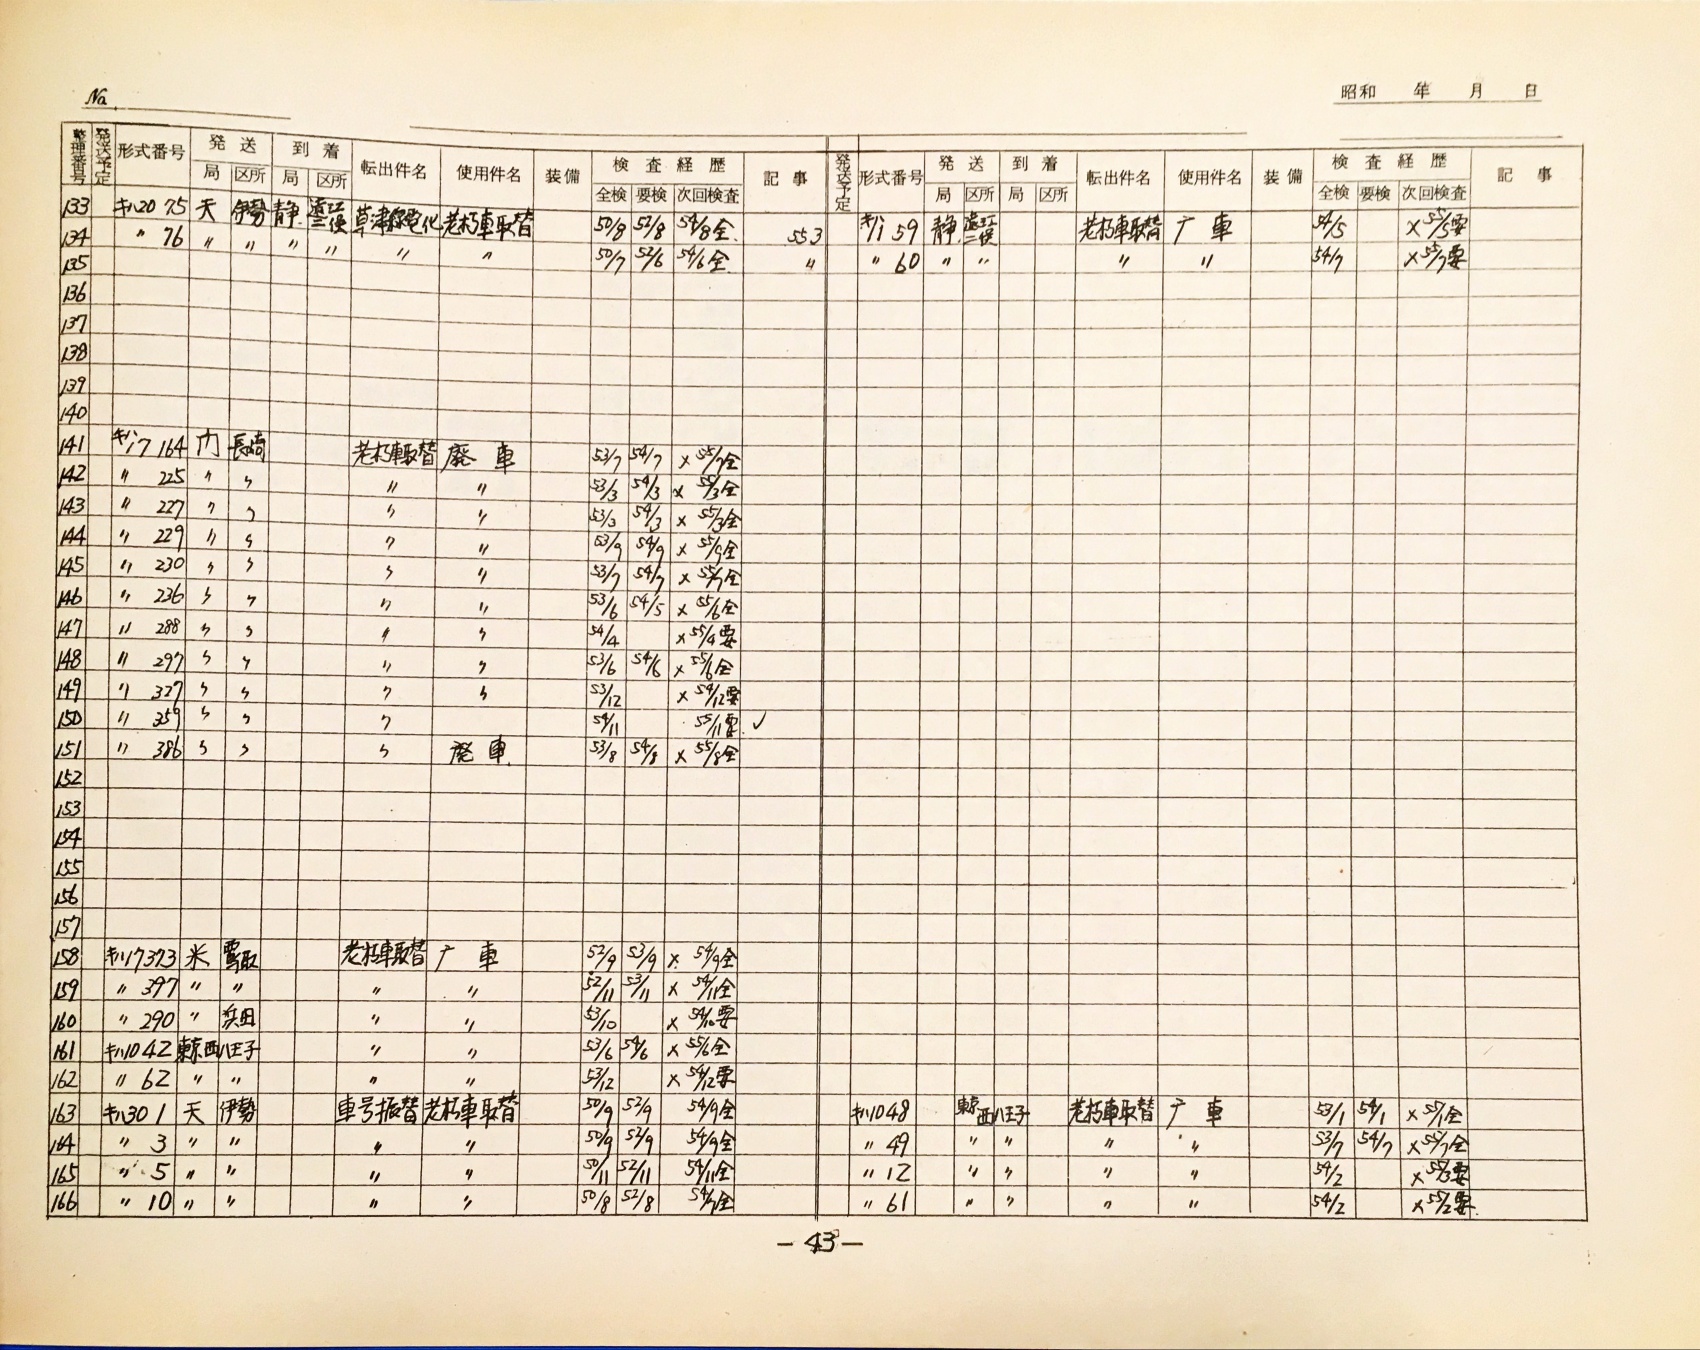 No.
昭和 年 月 日
整理番号 発送予定 形式番号 発送 到着 転出件名 使用件名 装備 検査経歴 記事 発送予定 形式番号 発送 到着 転出件名 使用件名 装備 検査経歴 記事
局 区所 局 区所 全検 要検 次回検査 局 区所 局 区所 全検 要検 次回検査
133 キハ20 75 天 伊勢 静 遠江二俣 草津線電化 老朽車取替 50/8 52/8 54/8全 553 キハ 59 静 遠江二俣 老朽車取替 广車 54/5 ×55/5要
134 〃 76 〃 〃 〃 〃 〃 〃 50/7 52/6 54/6全 〃 〃 60 〃 〃 〃 〃 54/7 ×55/7要
135
136
137
138
139
140
141 キハ17 164 门 長崎 老朽車取替 廃車 53/7 54/7 ×55/7全
142 〃 225 〃 〃 〃 〃 53/3 54/3 ×55/3全
143 〃 227 〃 〃 〃 〃 53/3 54/3 ×55/3全
144 〃 229 〃 〃 〃 〃 53/9 54/9 ×55/9全
145 〃 230 〃 〃 〃 〃 53/7 54/7 ×55/7全
146 〃 236 〃 〃 〃 〃 53/6 54/5 ×55/6全
147 〃 288 〃 〃 〃 〃 54/4 ×55/4要
148 〃 297 〃 〃 〃 〃 53/6 54/6 ×55/6全
149 〃 327 〃 〃 〃 〃 53/12 ×54/12要
150 〃 359 〃 〃 〃 54/11 55/11要 ✓
151 〃 386 〃 〃 〃 廃車 53/8 54/8 ×55/8全
152
153
154
155
156
157
158 キハ17373 米 鳥取 老朽車取替 广車 52/9 53/9 ×54/9全
159 〃 397 〃 〃 〃 〃 52/11 53/11 ×54/11全
160 〃 290 〃 浜田 〃 〃 53/10 ×54/10要
161 キハ10 42 東京西 八王子 〃 〃 53/6 54/6 ×55/6全
162 〃 62 〃 〃 〃 〃 53/12 ×54/12要
163 キハ30 1 天 伊勢 車号振替 老朽車取替 50/9 52/9 54/9全 キハ10 48 東京西 八王子 老朽車取替 广車 53/1 54/1 ×55/1全
164 〃 3 〃 〃 〃 〃 50/9 52/9 54/9全 〃 49 〃 〃 〃 〃 53/7 54/7 ×55/7全
165 〃 5 〃 〃 〃 〃 50/11 52/11 54/11全 〃 12 〃 〃 〃 〃 54/2 ×55/3要
166 〃 10 〃 〃 〃 〃 50/8 52/8 〃 61 〃 〃 〃 〃 54/2 ×55/2要
－43－